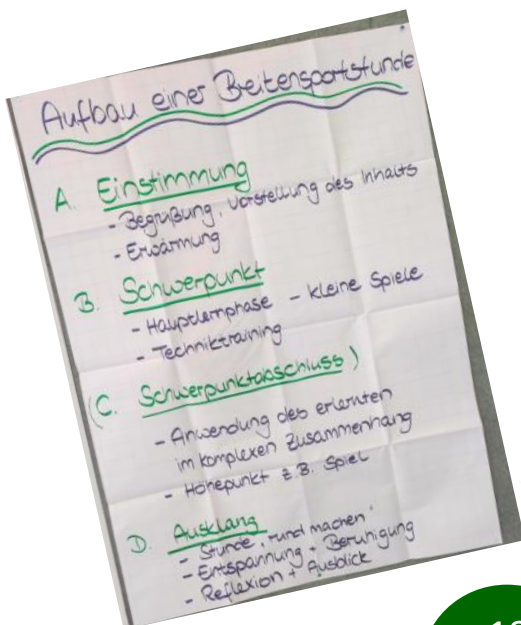 Aufbau einer Breitensportstunde
A. Einstimmung
- Begrüßung, Vorstellung des Inhalts
- Erwärmung
B. Schwerpunkt
- Hauptlernphase - kleine Spiele
- Techniktraining
(C. Schwerpunktabschluss)
- Anwendung des erlernten
im komplexen Zusammenhang
- Höhepunkt z.B. Spiel
D. Ausklang
- Stunde "rund machen"
- Entspannung + Beruhigung
- Reflexion + Ausblick